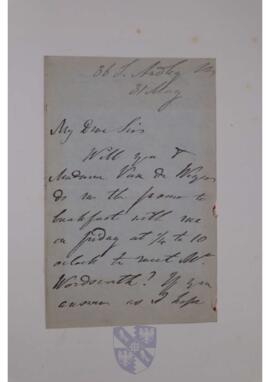 36 S. Audley
31 May
My Dear Sir
Will you &
Madame Van de Weyer
do me the favor to
breakfast with me
on friday at ¼ to 10
oclock to meet Mr.
Wordsworth? If you
answer as I hope